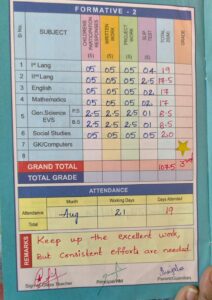 FORMATIVE - 2
Sl No. SUBJECT CHILDRENS PARTICIPATION RESPONSES WRITTEN WORK PROJECT WORK SLIP TEST TOTAL (20M) GRADE
(5) (5) (5) (5)
1 Ist Lang 05 05 05 04 19
2 IInd Lang 05 05 05 2.5 17.5
3 English 05 05 05 02 17
4 Mathematics 05 05 05 02 17
5 Gen.Science EVS P.S. 2.5 2.5 2.5 01 8.5
B.S. 2.5 2.5 2.5 01 8.5
6 Social Studies 05 05 05 05 20
7 GK/Computers
8
GRAND TOTAL 107.5 3rd
TOTAL GRADE
ATTENDANCE
Month Working Days Days Attended
Attendance Aug 21 19
REMARKS
Keep up the excellent work,
But consistent efforts are needed.
Signed Class Teacher Principal/HM Parent/Guardian